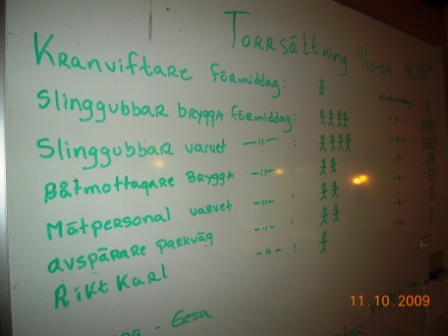 Torrsättning 11/10-09
Kranviftare förmiddag:
Slinggubbar brygga förmiddag:
Slinggubbar varvet -"- : -"-
Båtmottagare brygga -"- : -"-
Mätpersonal varvet -"- : -"-
avspärare parkväg -"- : -"-
Rikt Karl -"- :
- Gesa
11.10.2009